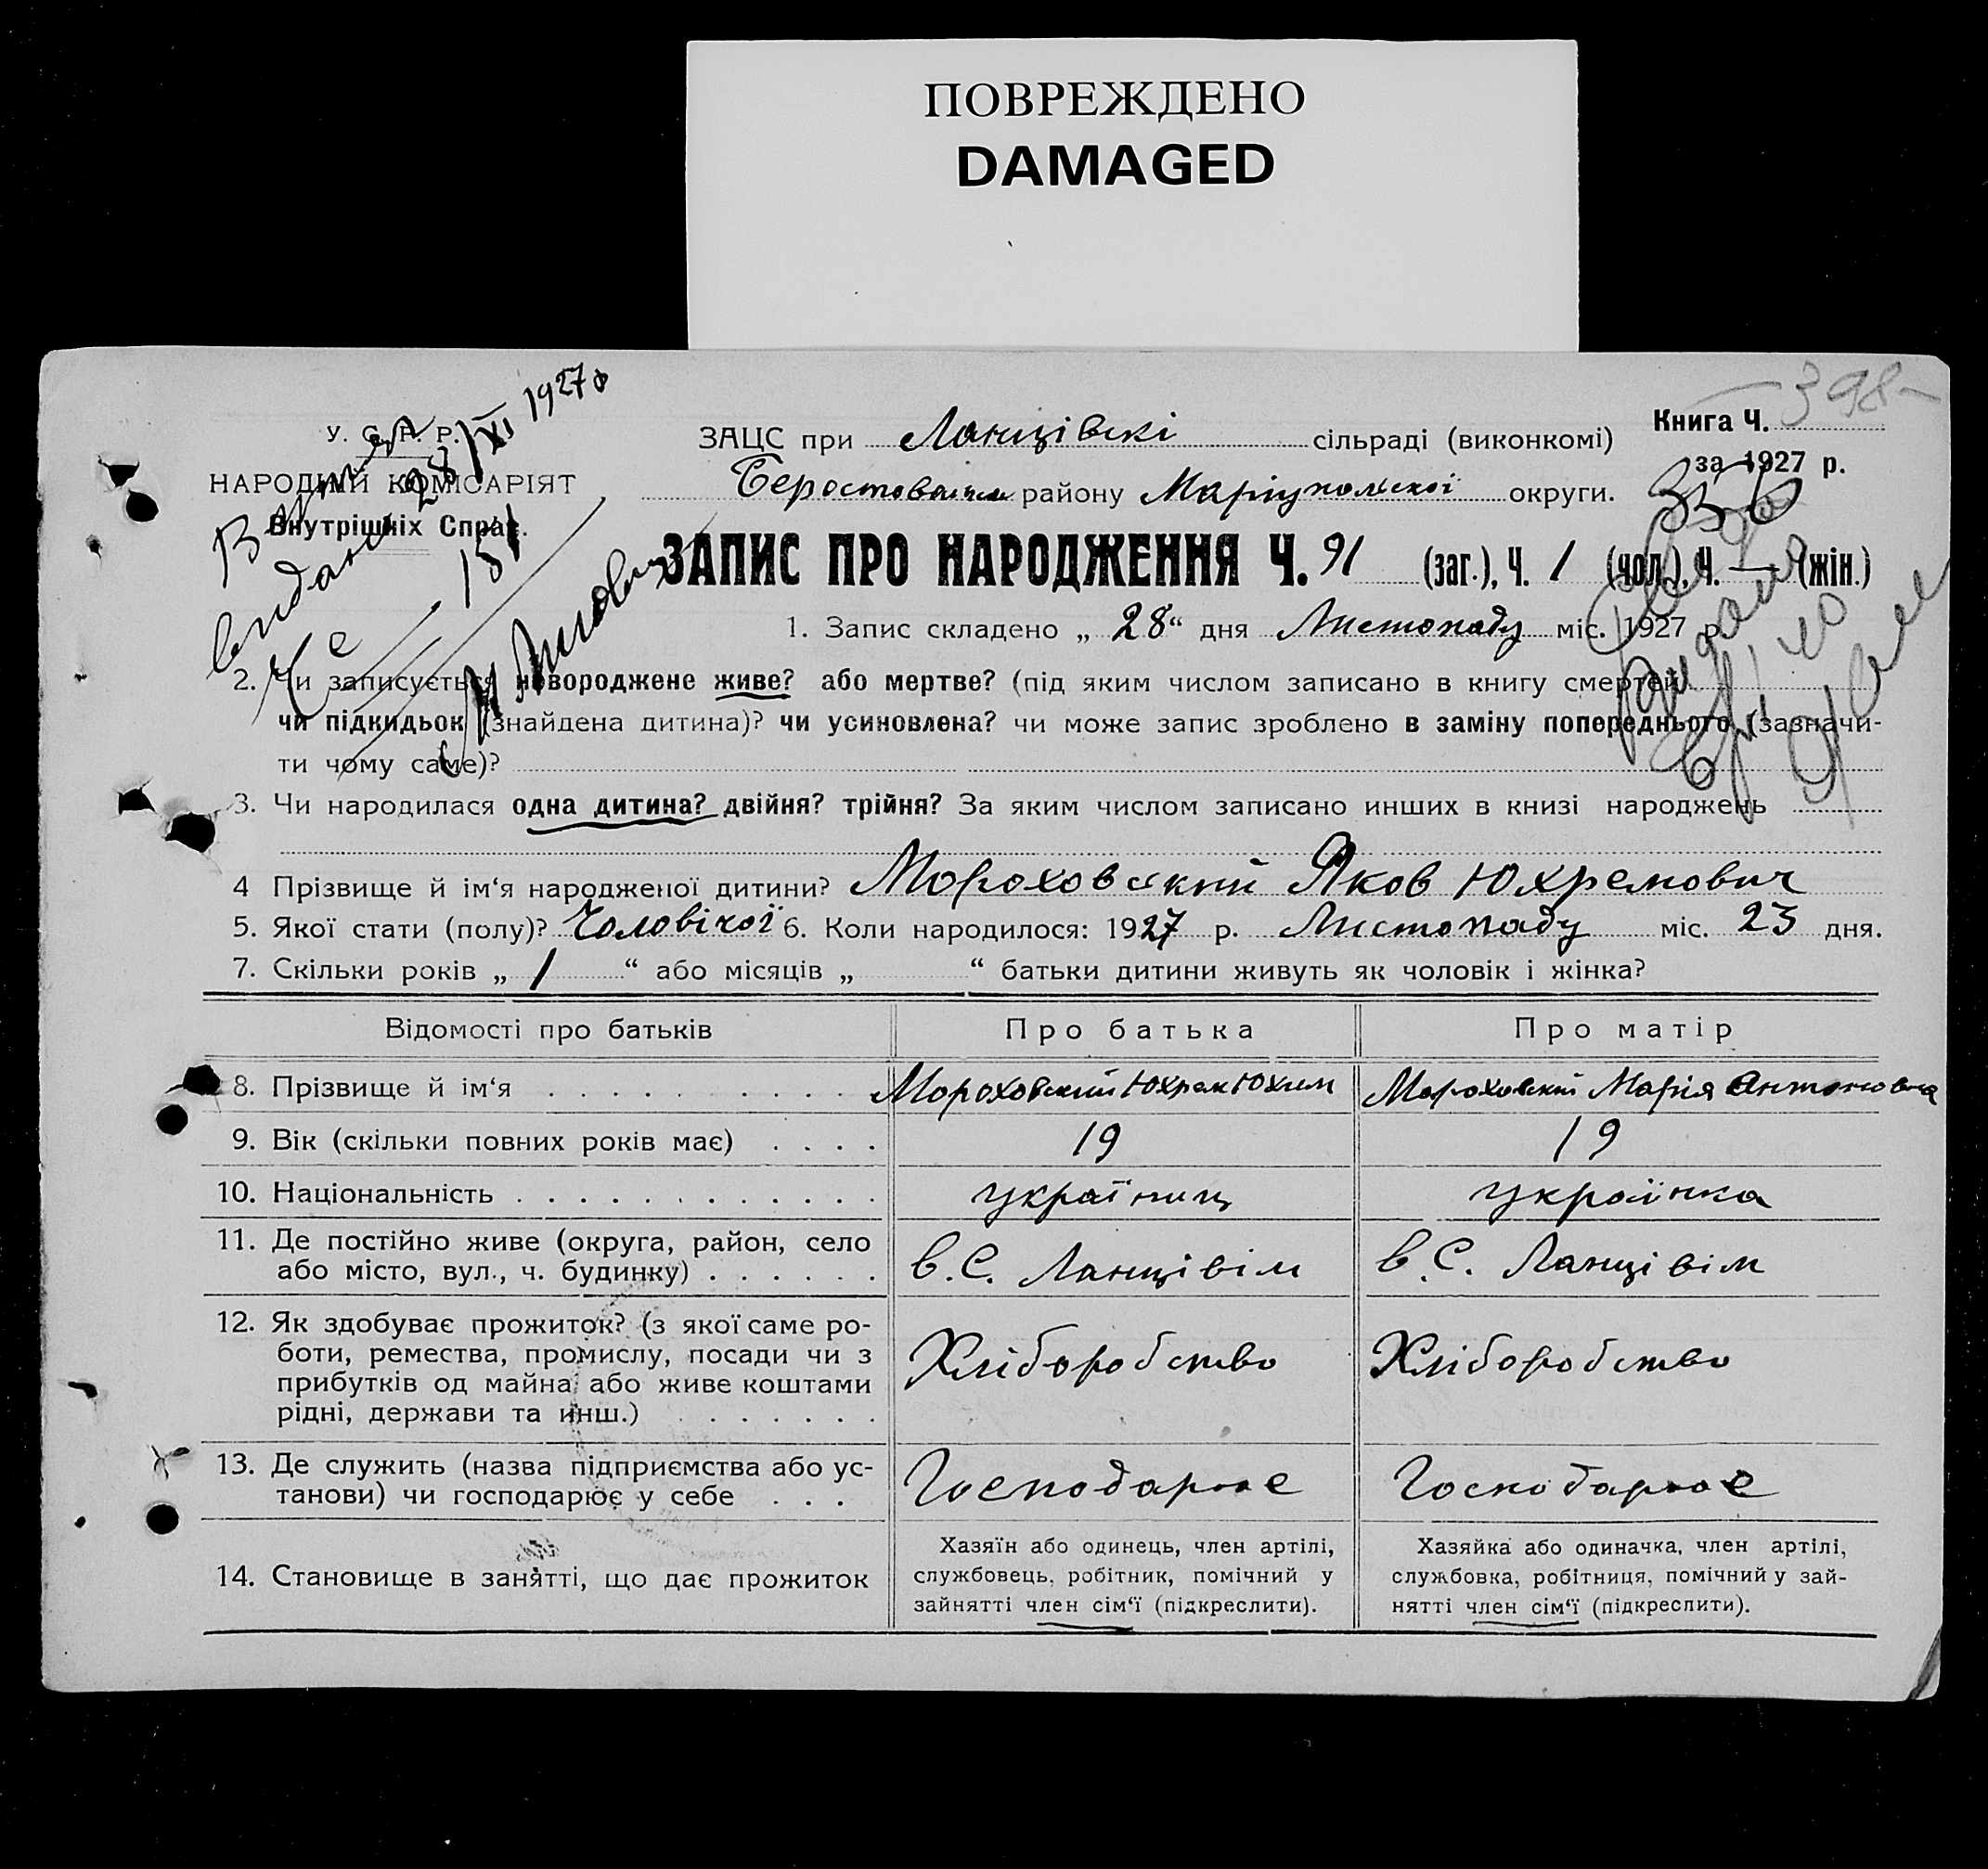 ПОВРЕЖДЕНО
DAMAGED
398
У. С. Р. Р.
НАРОДНИЙ КОМІСАРІЯТ
Внутрішніх Справ.
Витяг
видано 28/XI 1927 р
Ч 151
ЗАЦС при Ланцівскі сільраді (виконкомі)
Книга Ч.
за 1927 р.
району Маріупольскої округи.
336
ЗАПИС ПРО НАРОДЖЕННЯ Ч. 91 (заг.), Ч. 1 (чол.), Ч. — (жін.)
1. Запис складено „ 28 “ дня Листопаду міс. 1927 р.
2. Чи записується новороджене живе? або мертве? (під яким числом записано в книгу смертей
чи підкидьок (знайдена дитина)? чи усиновлена? чи може запис зроблено в заміну попереднього (зазначи-
ти чому саме)?
3. Чи народилася одна дитина? двійня? трійня? За яким числом записано инших в книзі народжень
4 Прізвище й ім‘я народженої дитини? Мороховский Яков Юхремович
5. Якої стати (полу)? Чоловічої 6. Коли народилося: 1927 р. Листопаду міс. 23 дня.
7. Скільки років „ 1 “ або місяців „ “ батьки дитини живуть як чоловік і жінка?
Відомості про батьків Про батька Про матір
8. Прізвище й ім‘я . . . . . . . . . . . Мороховский Юхрем Юхим Мороховский Марія Антоновна
9. Вік (скільки повних років має) . . . . 19 19
10. Національність . . . . . . . . . . . . . україниц українка
11. Де постійно живе (округа, район, село
або місто, вул., ч. будинку) . . . . . . в. С. Ланцівім в. С. Ланцівім
12. Як здобуває прожиток? (з якої саме ро-
боти, ремества, промислу, посади чи з
прибутків од майна або живе коштами
рідні, держави та инш.) . . . . . . . Хліборобство Хліборобство
13. Де служить (назва підприємства або ус-
танови) чи господарює у себе . . . Господарює Господарює
14. Становище в занятті, що дає прожиток
Хазяїн або одинець, член артілі,
службовець, робітник, помічний у
зайнятті член сім‘ї (підкреслити).
Хазяйка або одиначка, член артілі,
службовка, робітниця, помічний у зай-
нятті член сім‘ї (підкреслити).